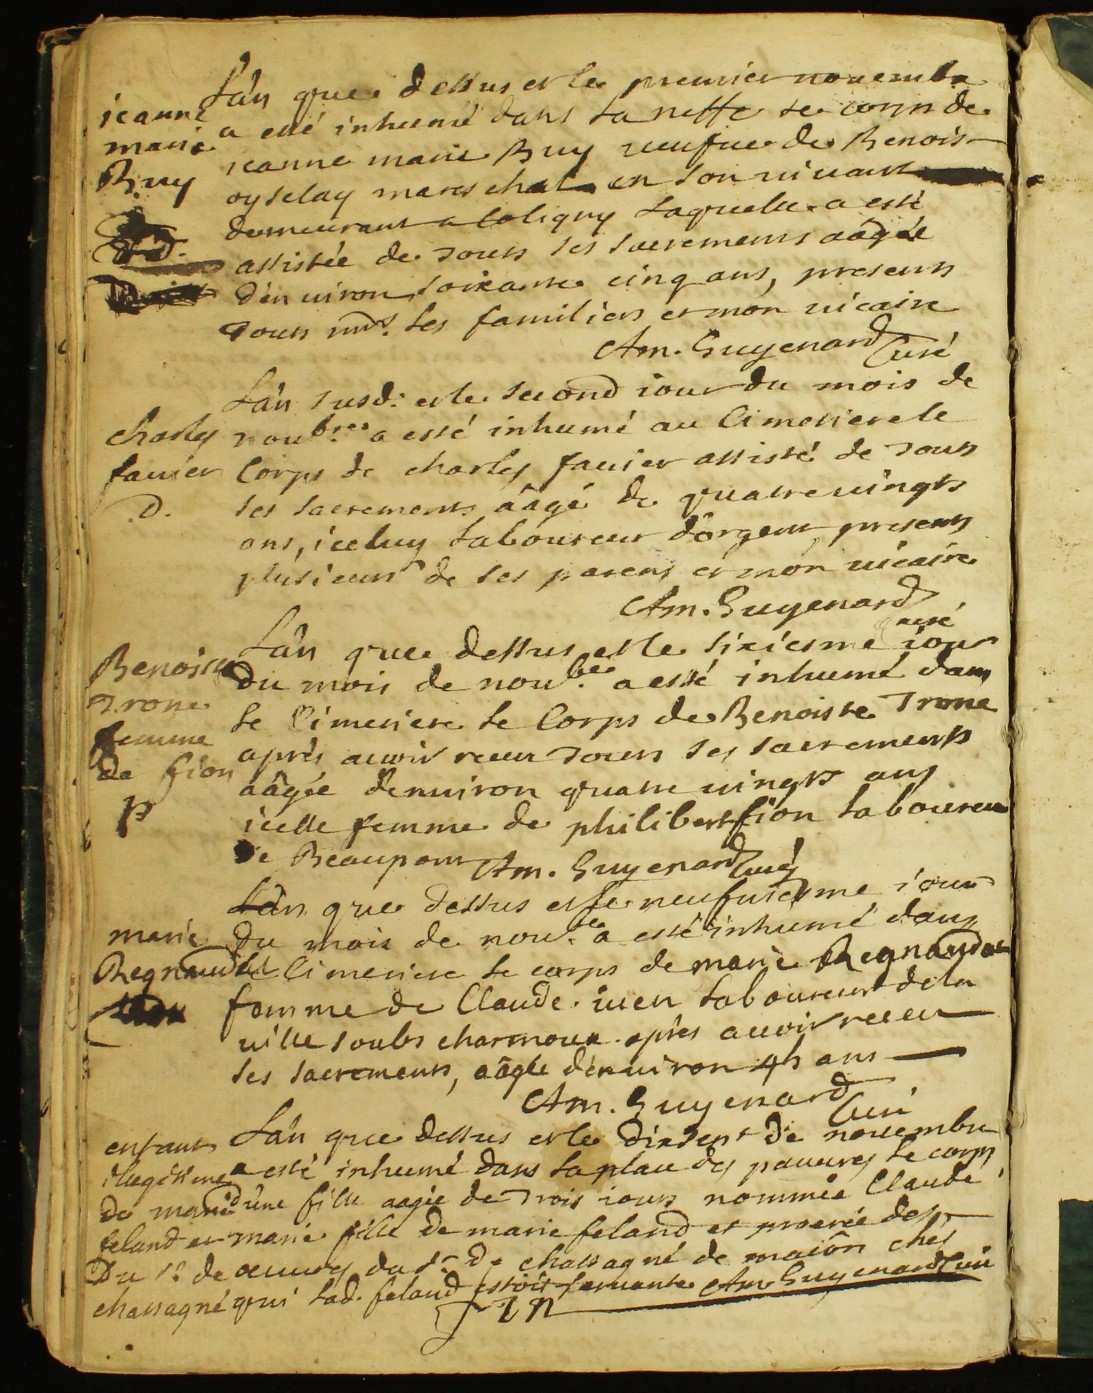 L'an que dessus et le premier novembre
jeanne
marie
Buy
a esté inhumé dans la neffe le corps de
jeanne marie Buy veufue de Benoist
oyselay mareschal en son vivant
demeurant a Coligny laquelle a esté
assistée de tous les sacrements aâgée
d'environ soixante cinq ans, presents
tous mrs. les familiers et mon vicaire
Am. Guyenard Curé
L'an susd. et le second iour du mois de
charles
favier
D.
novbre a esté inhumé au Cimetiere le
Corps de charles favier assisté de tous
les sacrements aâgé de quatre vingts
ans, iceluy laboureur d'orgent presents
plusieurs de ses parens et mon vicaire
Am. Guyenard
curé
L'an que dessus et le sixiesme iour
Benoiste
Trone
femme
de fion
p
du mois de novbre a esté inhumé dans
le Cimetiere le Corps de Benoiste Trone
après avoir receu tous les sacrements
aâgée d'environ quatre vingts ans
icelle femme de philibert fion laboureur
de Beaupont Am. Guyenard Curé
L'an que dessus et le neufviesme iour
marie
Regnaudat
du mois de novbre a esté inhumé dans
le Cimetiere le corps de marie Regnaudat
femme de Claude iuen laboureur de la
ville soubs charmoux après avoir receu
les sacrements, aâgée d'environ 45 ans
Am. Guyenard
Curé
L'an que dessus et le dixsept de novembre
enfant
illegitime
de marie
feland et
du sr. de
chassagné
a esté inhumé dans la place des pauvres le corps
d'une fille aagée de trois iours nommée Claude
marie fille de marie feland et procrée des
œuvres du sr. de chassagné de maiôn ches
qui lad. feland estoit servante Am Guyenard Curé